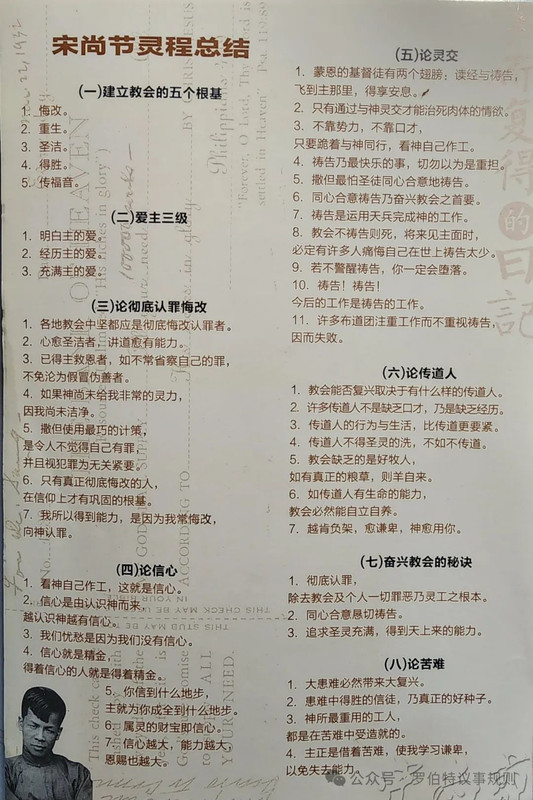 宋尚节灵程总结
(一)建立教会的五个根基
1. 悔改。
2. 重生。
3. 圣洁。
4. 得胜。
5. 传福音。
(二)爱主三级
1. 明白主的爱。
2. 经历主的爱。
3. 充满主的爱。
(三)论彻底认罪悔改
1. 各地教会中坚都应是彻底悔改认罪者。
2. 心愈圣洁者，讲道愈有能力。
3. 已得主救恩者，如不常省察自己的罪，
不免沦为假冒伪善者。
4. 如果神尚未给我非常的灵力，
因我尚未洁净。
5. 撒但使用最巧的计策，
是令人不觉得自己有罪，
并且视犯罪为无关紧要。
6. 只有真正彻底悔改的人，
在信仰上才有巩固的根基。
7. 我所以得到能力，是因为我常悔改，
向神认罪。
(四)论信心
1. 看神自己作工，这就是信心。
2. 信心是由认识神而来，
越认识神越有信心。
3. 我们忧愁是因为我们没有信心。
4. 信心就是精金，
得着信心的人就是得着精金。
5. 你信到什么地步，
主就为你成全到什么地步。
6. 属灵的财宝即信心。
7. 信心越大，能力越大，
恩赐也越大。
(五)论灵交
1. 蒙恩的基督徒有两个翅膀：读经与祷告，
飞到主那里，得享安息。
2. 只有通过与神灵交才能治死肉体的情欲。
3. 不靠势力，不靠口才，
只要跪着与神同行，看神自己作工。
4. 祷告乃最快乐的事，切勿以为是重担。
5. 撒但最怕圣徒同心合意地祷告。
6. 同心合意祷告乃奋兴教会之首要。
7. 祷告是运用天兵完成神的工作。
8. 教会不祷告则死，将来见主面时，
必定有许多人痛悔自己在世上祷告太少。
9. 若不警醒祷告，你一定会堕落。
10. 祷告！祷告！
今后的工作是祷告的工作。
11. 许多布道团注重工作而不重视祷告，
因而失败。
(六)论传道人
1. 教会能否复兴取决于有什么样的传道人。
2. 许多传道人不是缺乏口才，乃是缺乏经历。
3. 传道人的行为与生活，比传道更要紧。
4. 传道人不得圣灵的洗，不如不传道。
5. 教会缺乏的是好牧人，
如有真正的粮草，则羊自来。
6. 如传道人有生命的能力，
教会必然能自立自养。
7. 越肯负架，愈谦卑，神愈用你。
(七)奋兴教会的秘诀
1. 彻底认罪，
除去教会及个人一切罪恶乃灵工之根本。
2. 同心合意恳切祷告。
3. 追求圣灵充满，得到天上来的能力。
(八)论苦难
1. 大患难必然带来大复兴。
2. 患难中得胜的信徒，乃真正的好种子。
3. 神所最重用的工人，
都是在苦难中受造就的。
4. 主正是借着苦难，使我学习谦卑，
以免失去能力。
复得
的
日记
公众号·罗伯特议事规则